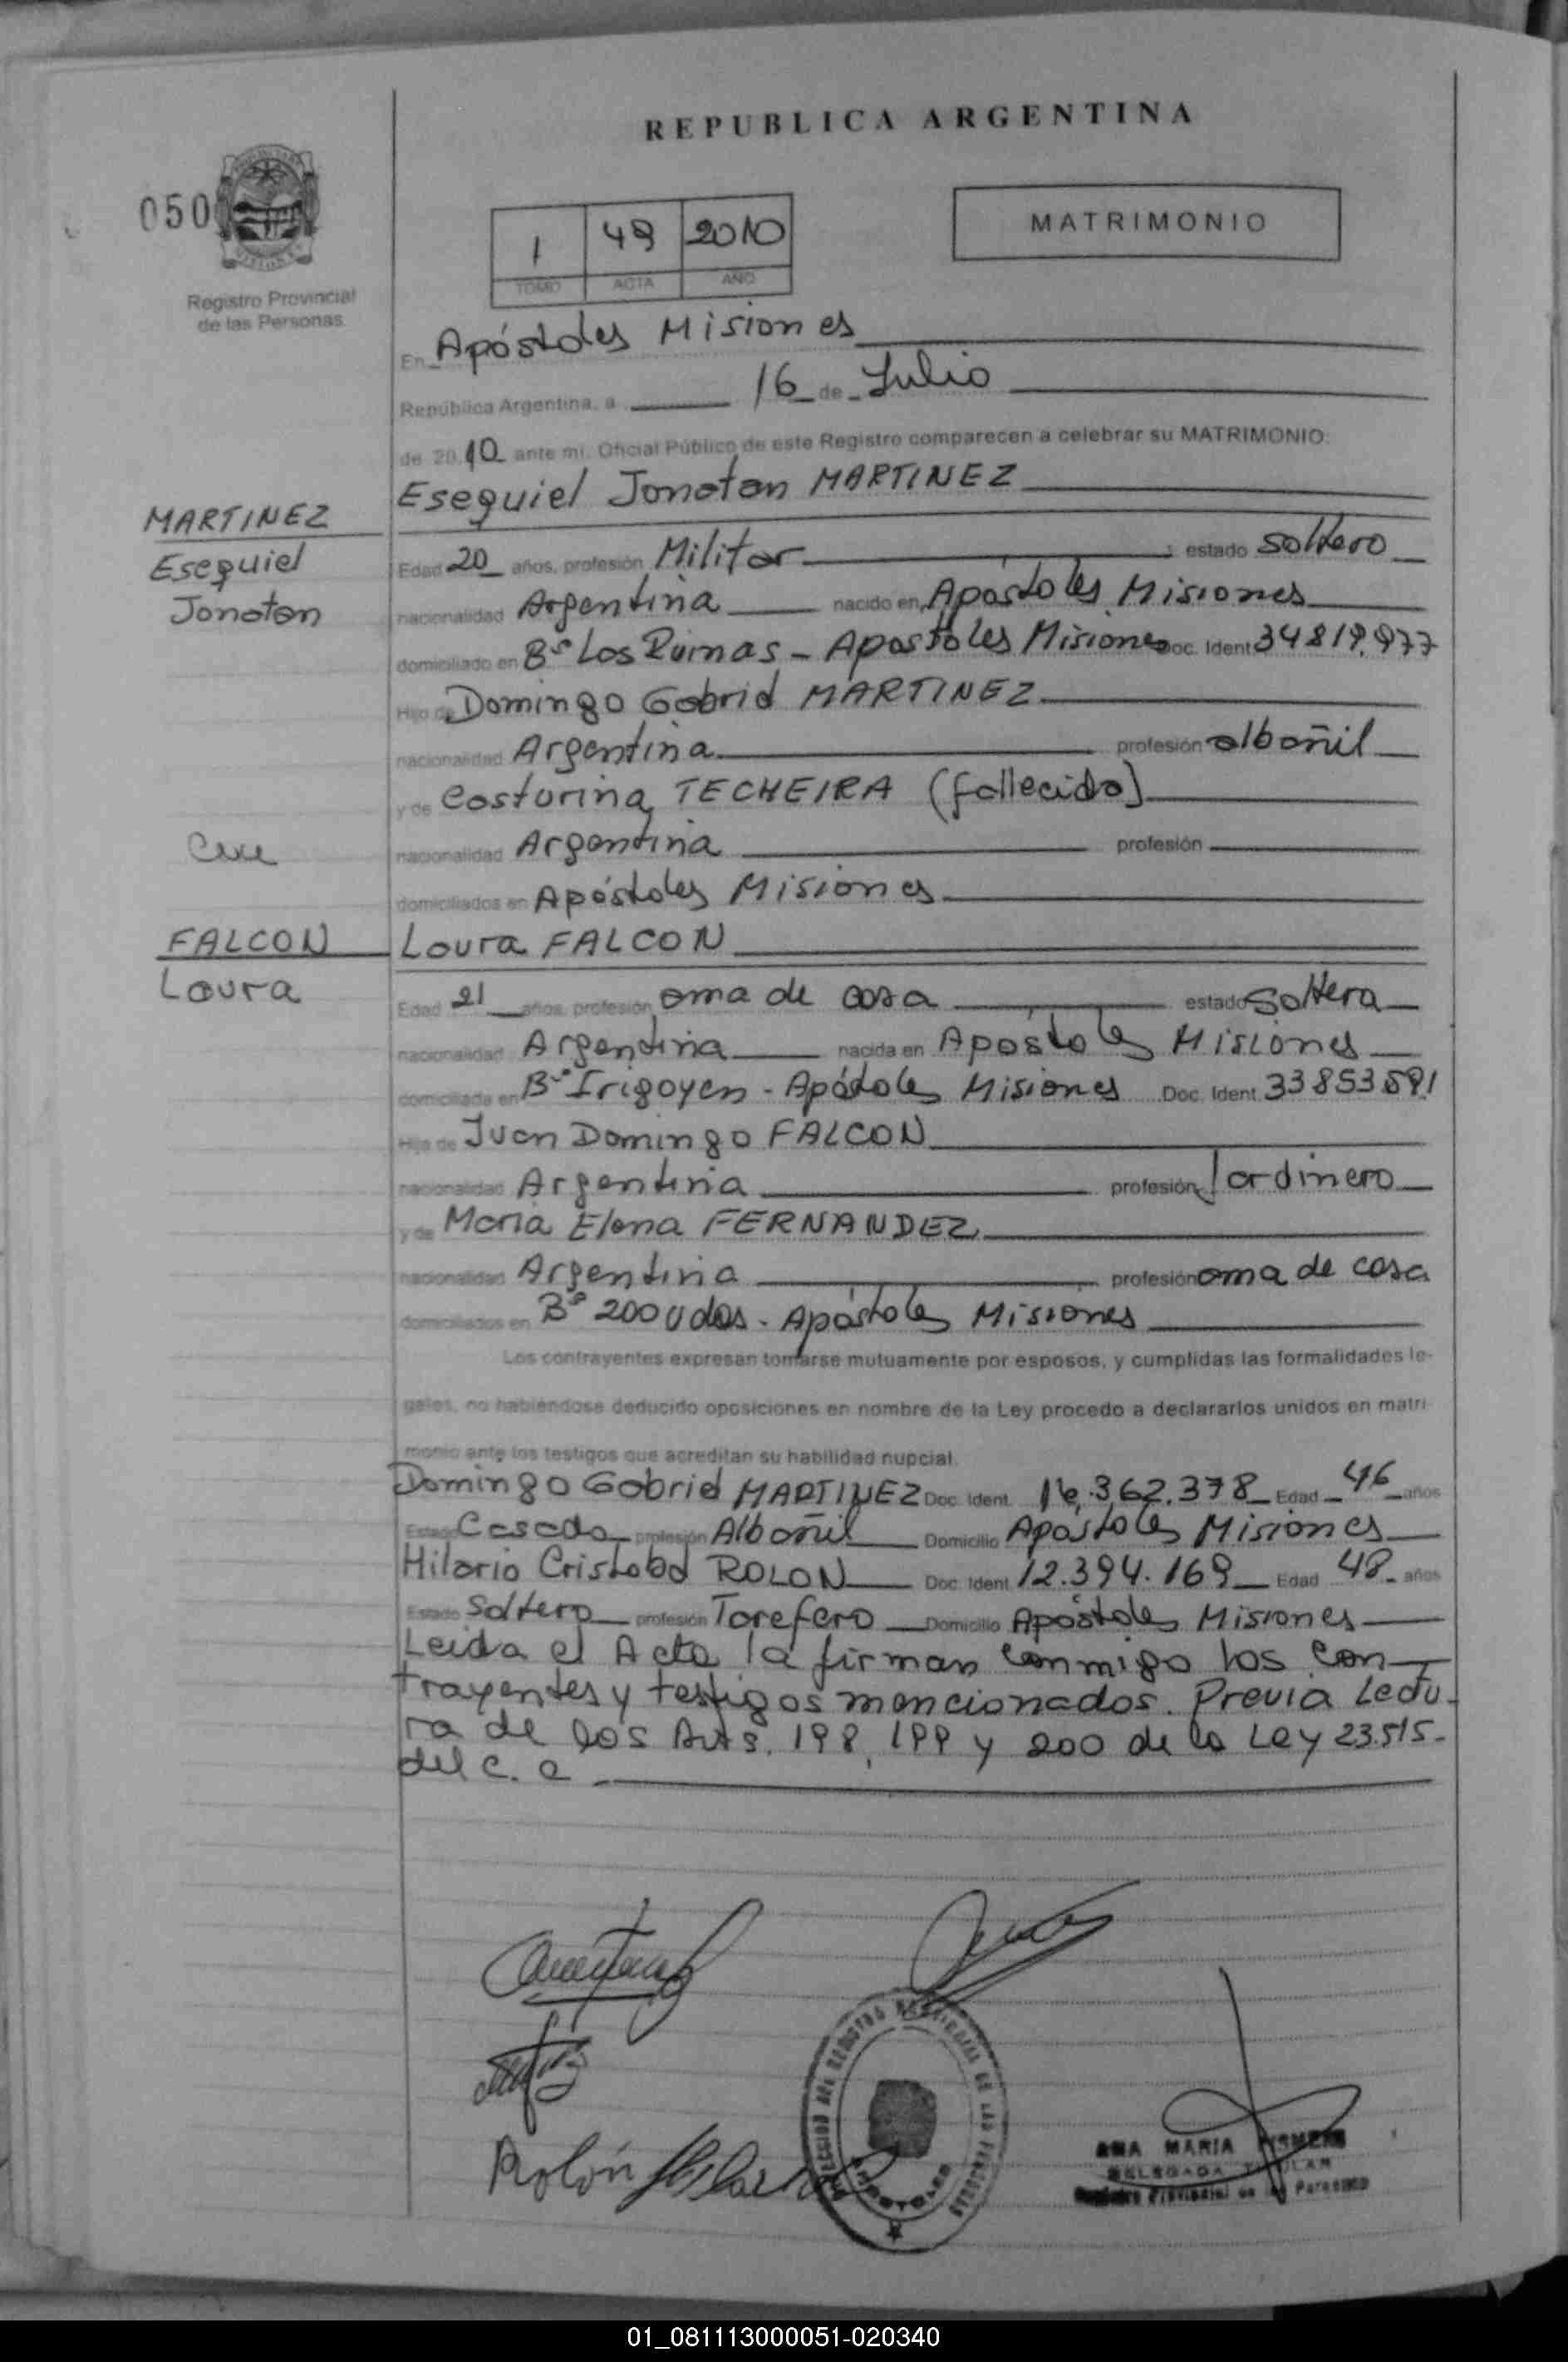 REPUBLICA ARGENTINA
050
MATRIMONIO
1 49 2010
TOMO ACTA AÑO
Registro Provincial
de las Personas
En Apóstoles Misiones
República Argentina, a 16 de Julio
de 2010 ante mi. Oficial Público de este Registro comparecen a celebrar su MATRIMONIO:
Esequiel Jonatan MARTINEZ
MARTINEZ
Esequiel
Jonatan
Edad 20 años, profesión Militar estado soltero
nacionalidad Argentina nacido en Apóstoles Misiones
domiciliado en Bº Las Ruinas - Apostoles Misiones Doc. Ident. 34819.977
Hijo de Domingo Gabriel MARTINEZ
nacionalidad Argentina profesión albañil
y de Casturina TECHEIRA (fallecida)
nacionalidad Argentina profesión
domiciliados en Apóstoles Misiones
FALCON
Laura
Laura FALCON
Edad 21 años, profesión ama de casa estado Soltera
nacionalidad Argentina nacida en Apóstoles Misiones
domiciliada en Bº Irigoyen - Apóstoles Misiones Doc. Ident. 33853591
Hija de Juan Domingo FALCON
nacionalidad Argentina profesión Jardinero
y de Maria Elena FERNANDEZ
nacionalidad Argentina profesión ama de casa
domiciliados en Bº 200 Vdas. Apóstoles Misiones
Los contrayentes expresan tomarse mutuamente por esposos, y cumplidas las formalidades le-
gales, no habiéndose deducido oposiciones en nombre de la Ley procedo a declararlos unidos en matri
monio ante los testigos que acreditan su habilidad nupcial.
Domingo Gabriel MARTINEZ Doc. Ident. 16.362.378 Edad 46 años
Estado Casado profesión Albañil Domicilio Apóstoles Misiones
Hilario Cristobal ROLON Doc. Ident. 12.394.169 Edad 48 años
Estado Soltero profesión Tarefero Domicilio Apóstoles Misiones
Leida el Acta la firman conmigo los con-
trayentes y testigos mencionados. Previa Lectu-
ra de los Arts. 198, 199 y 200 de la Ley 23.515-
del C. C
Rolón Hilario
APOSTOLES
ANA MARIA
DELEGADA TITULAR
Registro Provincial de las Personas
01_081113000051-020340